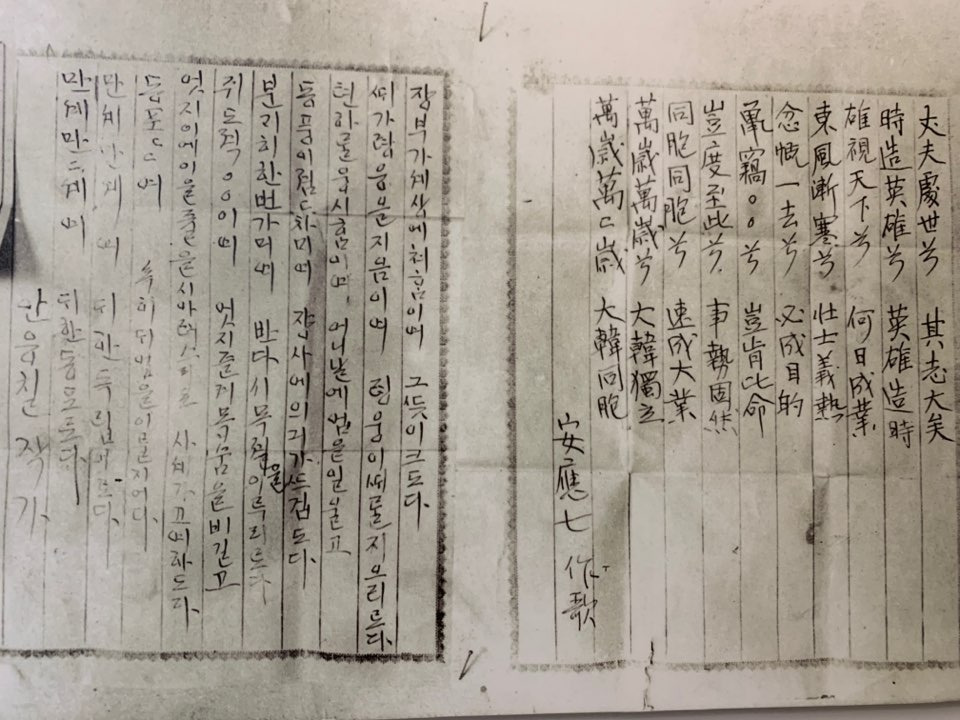 丈夫處世兮 其志大矣
時造英雄兮 英雄造時
雄視天下兮 何日成業
東風漸寒兮 壯士義熱
忿慨一去兮 必成目的
鼠竊○○兮 豈肯比命
豈度至此兮 事勢固然
同胞同胞兮 速成大業
萬歲萬歲兮 大韓獨立
萬歲萬々歲 大韓同胞
安應七 作歌
장부가세상에쳐함이여 그뜻이크도다.
ᄯᅢ가령웅을지음이여 령웅이ᄯᅢ를지으리로다.
텬하를웅시함이여 어니날에업을일울고
동풍이졈々차미여 쟝사에의긔가뜨겁도다.
분개히한번가미여 반다시목젹을이루리로다
쥐도젹○○이여 엇지즐겨목숨을비길고
엇지이에이를줄을시아려스리요 사세가고여하도다.
동포々々여 속히대업을이룰지어다.
만세만세여 대한독립이로다.
만세만々세여 대한동포로다.
안응칠 작가.